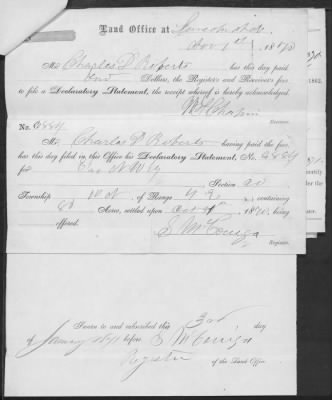 Land Office at
Nov 1st 1870
Mr Charles D. Roberts has this day paid
Dollars, the Register and Receiver's fees
to file a Declaratory Statement, the receipt whereof is hereby acknowledged.
Receiver.
No. 2884
Mr. Charles D Roberts having paid the fees,
has this day filed in this Office his Declaratory Statement, No. 2884
for
Section
Township 10 N, of Range containing
80 Acres, settled upon 1870, being
offered.
S McConiga
Register.
Sworn to and subscribed this 3rd day
of before S McConiga
Register of the Land Office.